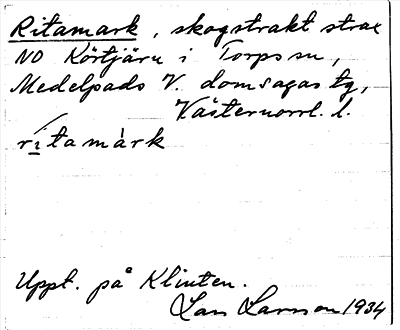 Ritamark, skogstrakt strax
NO Körtjärn i Torps sn,
Medelpads V. domsagas tg,
Västernorrl. l.
rítamàrk
Uppt. på Klinten.
Lars Larsson 1934